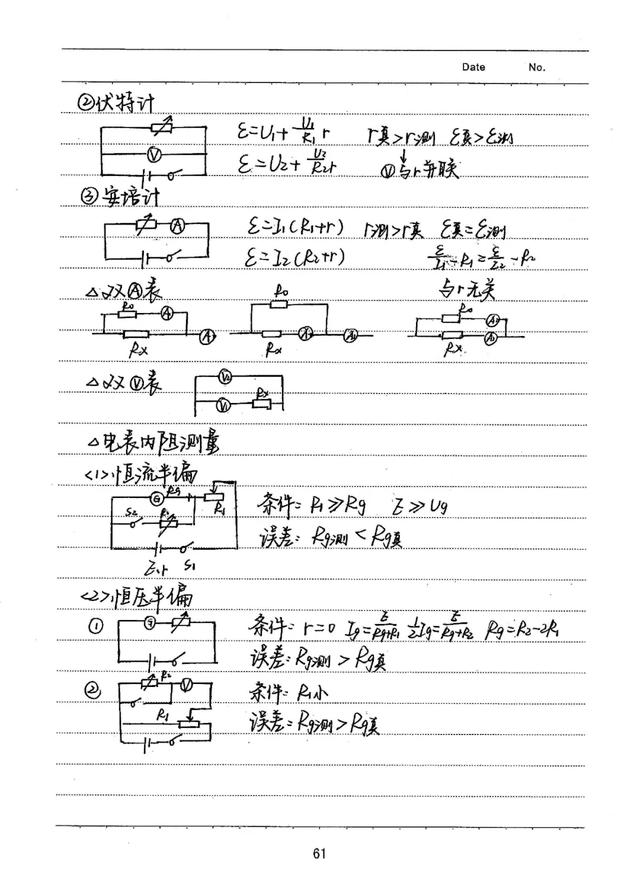 Date No.
②伏特计
ε=U₁+U₁/R₁ r r真>r测 ε真>ε测
ε=U₂+U₂/R₂ r Ⓥ与r并联
③安培计
ε=I₁(R₁+r) r测>r真 ε真=ε测
ε=I₂(R₂+r) ε/I₁-R₁=ε/I₂-R₂
与r无关
△双Ⓐ表
R₀ A Rx A
R₀ Rx A₁ A₂
R₀ Rx
△双Ⓥ表
V₂ V₁ Rx
△电表内阻测量
<1>恒流半偏
G Rg R₁ S₂ R₂ E,r S₁
条件: R₁≫Rg E≫Ug
误差: Rg测<Rg真
<2>恒压半偏
① 条件: r=0 Ig=E/(Rg+R₁) ½Ig=E/(Rg+R₂) Rg=R₂-2R₁
误差: Rg测>Rg真
② R₂ V R₁
条件: R₁小
误差: Rg测>Rg真
61